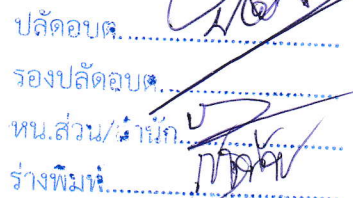 ปลัดอบต.
รองปลัดอบต.
หน.ส่วน/สำนัก
ร่างพิมพ์